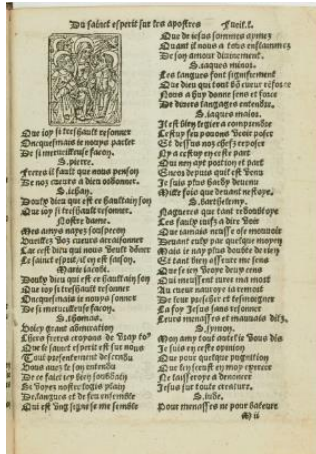 Du sainct esperit sur les apostres
Fueil. l.
Que ioy si treshault resonner
Oncquesmais ie nouys parler
De si merueilleuse facon.
S. pierre.
Freres il fault que nous penson
De noz cueurs a dieu donner.
S. iehan.
Doulx dieu que est ce haultain son
Que ioy si treshault resonner
Nostre dame.
Mes amys nayez souspecon
Vueillez voz cueurs
Car cest dieu qui nous veult dōner
Le sainct esperit, il en est saison.
Marie iacobi.
Doulx dieu qui est ce haultain son
Que ioy si treshault resonner
Oncquesmais ie nouys sonner
De si merueilleuse facon.
S. thomas.
Voicy grant admiration
Chers freres
Que le sainct esperit est sur nous
Tout presentement descendu
Vous auez le son entendu
De ce faict icy bien
Se voyez nostre logis plain
De langues et de feu ensemble
Qui est vng signe se me semble
Que de iesus sommes aymez
Quant il nous a tous enflammez
De son amour diuinement.
S. iaques minor.
Les langues font signifiement
Que dieu qui tout bō cueur
Nous a huy donne sens et force
De diuers langages entendre.
S. iaques maior.
Il est bien legier a comprendre
Cestuy seu pouons veoir poser
Et dessus noz chefz reposer
Ny a cestuy en ceste part
Qui nen ayt portion et part
Encor depuis quil est venu
Je suis plus hardy deuenu
Mille fois que deuant
S. barthelemy.
Nagueres que tant
Les faulx iuifz a dire voir
Que iamais neusse ose mouuoir
Deuant eulx par quelque moyen
Mais ie nay plus doubte de rien
Et tant bien asseure me sens
Que se ien voyoe deux cens
Qui meussent iure ma mort
Au cueur nauroye ia remort
De leur prescher et tesmoigner
La foy Jesus sans
Leurs menasses et mauuais ditz.
S. symon.
Mon amy tout autel ie vous dis
Je suis en ceste opinion
Que pour quelque pugnition
Que len sceust en moy exercer
Ne laisseroye a denoncer
Jesus sur toute creature.
S. iude.
Pour menasses ne pour bature
M ii